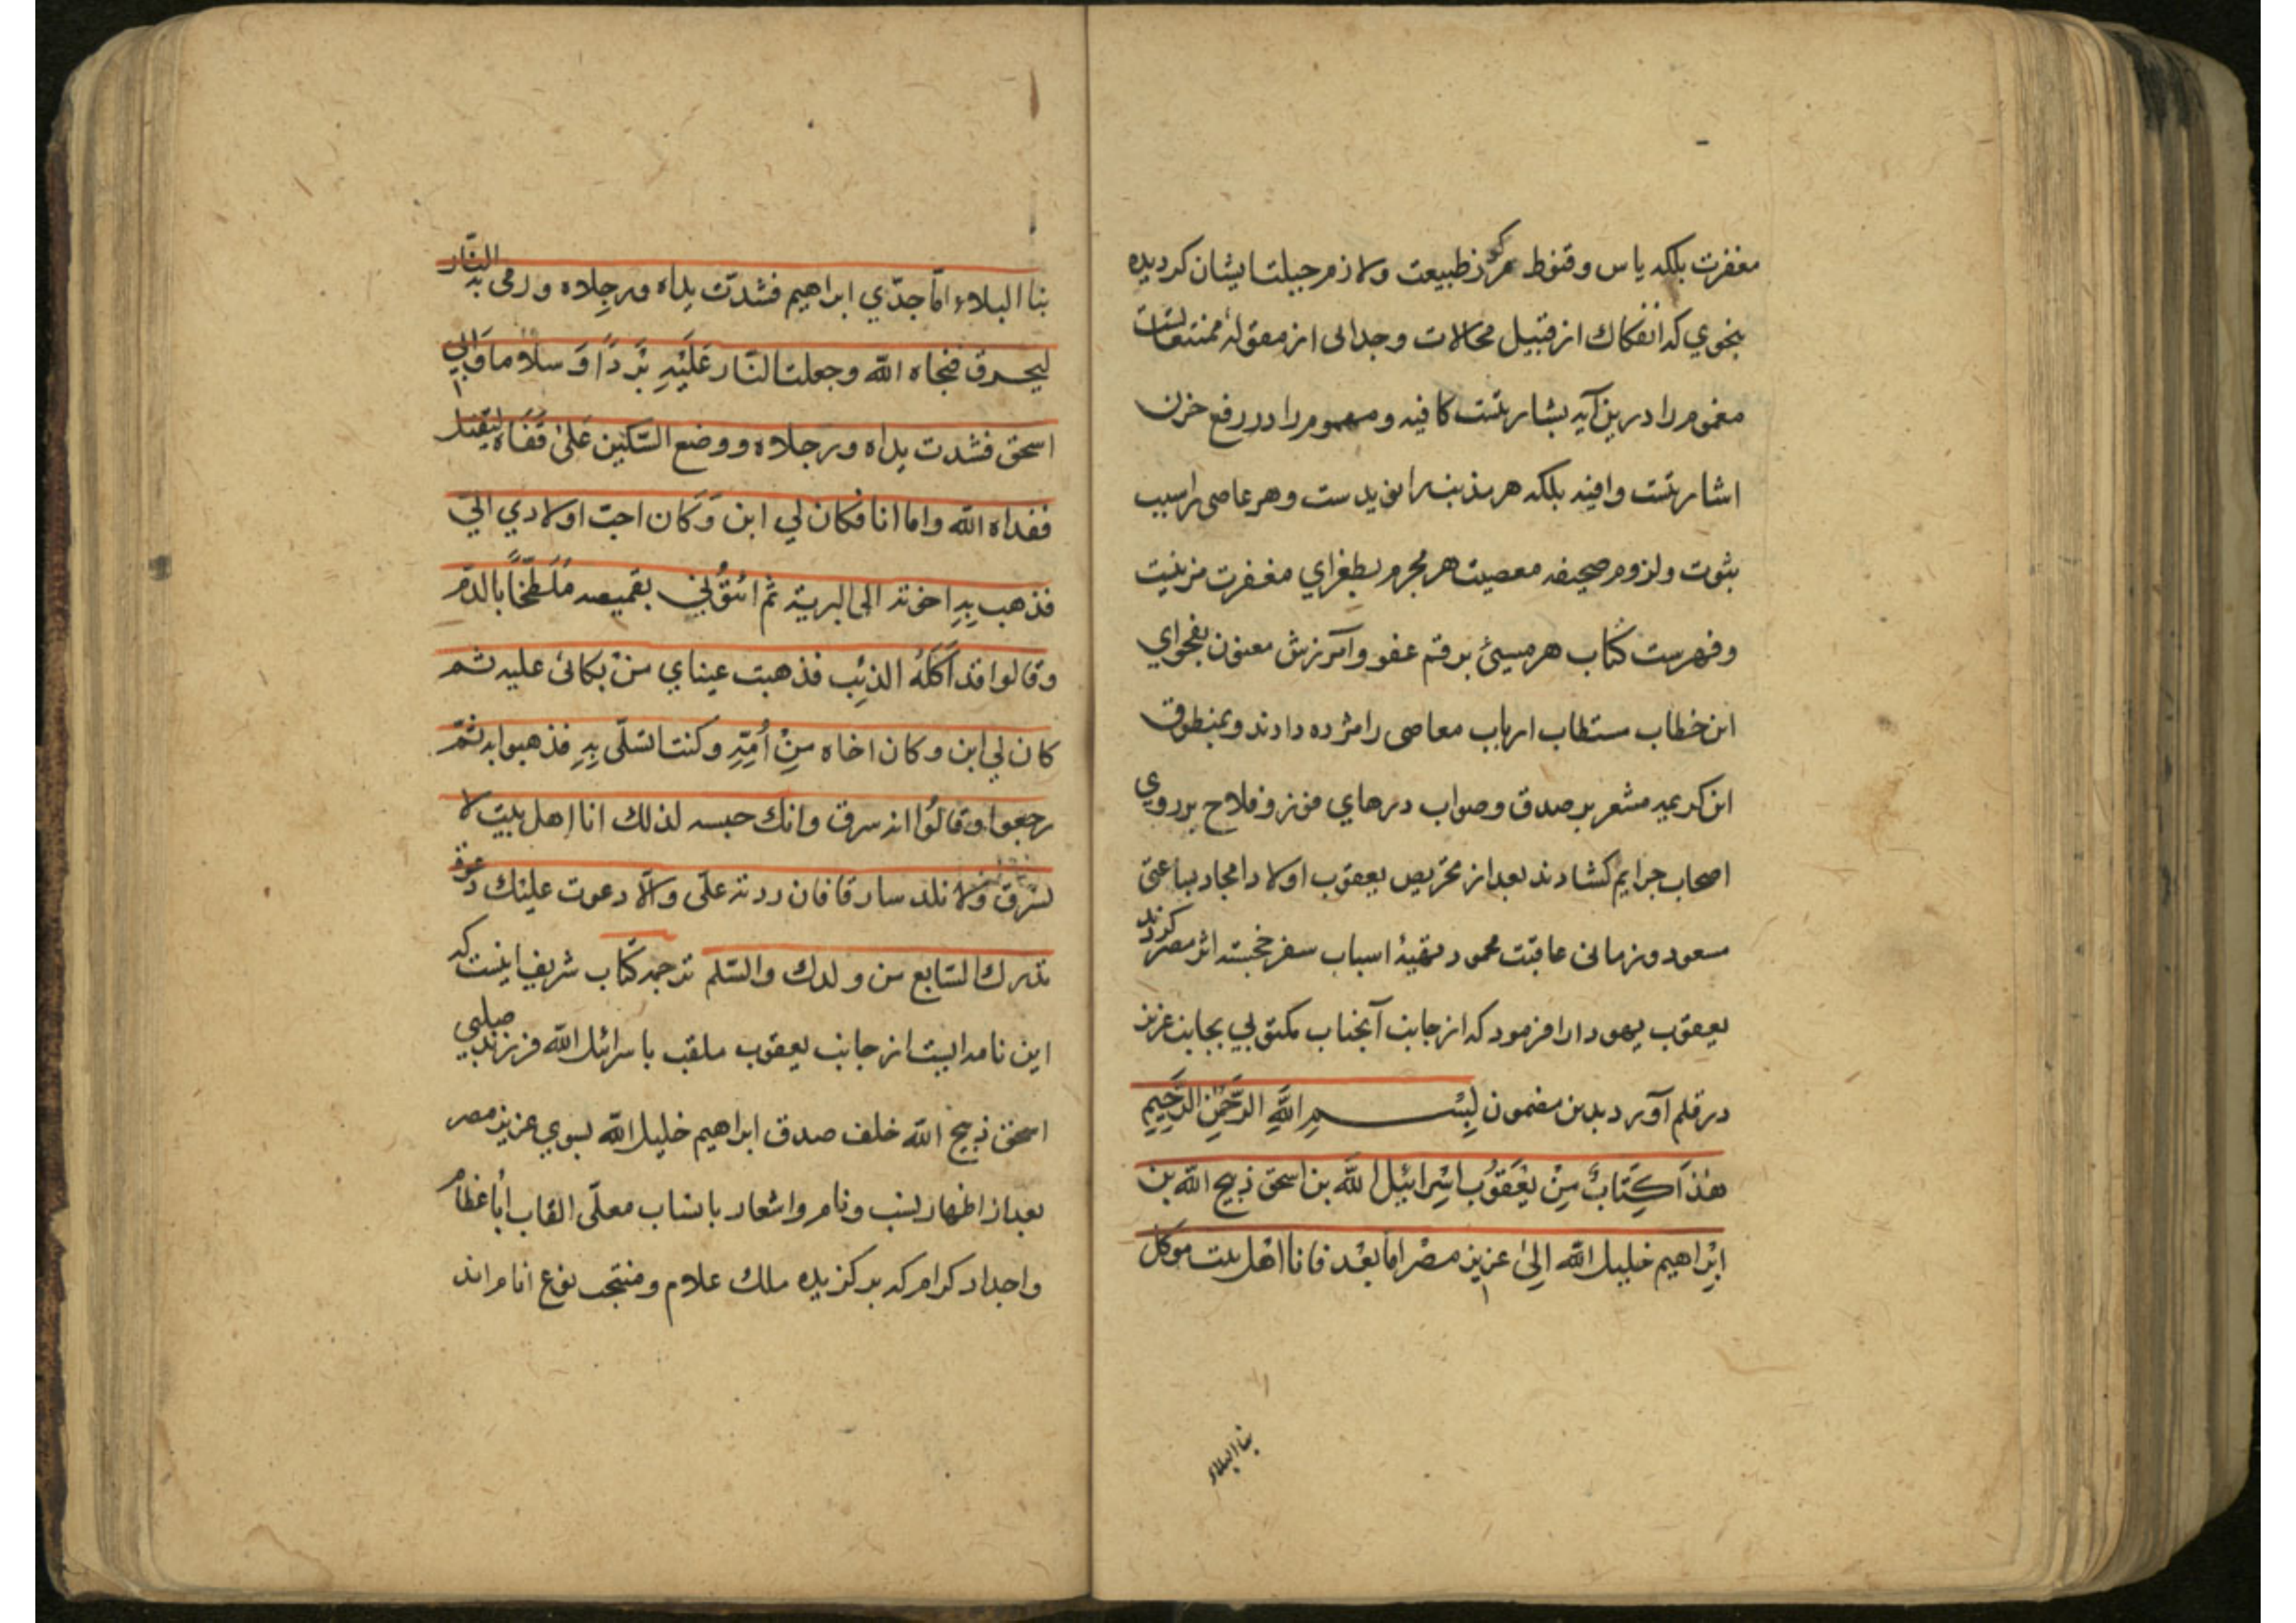 مغفرت بلكه ياس وقنوط مركوز طبيعت ولازم جبلت ايشان كرديده
بنحوي كه انفكاك از قبيل محالات وجدالى از مقوله ممتنعاتست
مغموم را درين آيه بشارتست كافيه ومهموم را در رفع حزن
اشارتست وافيه بلكه هر مذنب را نويدست وهر عاصى را سبب
ثبوت ولزوم صحيفه معصيت هر مجرم بطغراي مغفرت مزينست
وفهرست كتاب هر مسيئ برقم عفو وآمرزش معنون بفحواي
اين خطاب مستطاب ارباب معاصى را مژده دادند وبمنطوق
اين كريمه مشعر بر صدق وصواب درهاي فوز وفلاح بر روي
اصحاب جرايم كشادند بعد از تحريص يعقوب اولاد امجاد بساعتى
مسعود وزمانى عاقبت محمود تهيهٔ اسباب سفر خجسته اثر مصر كردند
يعقوب يهودا را فرمود كه از جانب آنجناب مكتوبي بجانب عزيز
در قلم آورد بدين مضمون بِسْمِ اللهِ الرَّحْمٰنِ الرَّحِيمِ
هٰذَا كِتَابٌ مِنْ يَعْقُوبَ اسْرائيل اللّه بن اسحق ذبيح الله بن
اِبْراهيم خليل اللّه اِلىٰ عزيز مصْر امّا بعْد فانا اهْل بيت موكل
بنا البلاء
بنا البلاء امّا جدّي ابراهيم فشدّت يداه ورجِلاه ورمى به النّار
ليحرق فنجاه اللّه وجعلت النّار عَلَيْهِ بَرْدًا وَسلاما وَابي
اسحق فشدت يداه ورجلاه ووضع السّكين عَلىٰ قَفَاه ليقتل
ففداه اللّه واما انا فكان لي ابن وَكان احبّ اولادي اليّ
فذهب بِهِ اخوته الى البرية ثم اتَوْني بقميصه مُلَطَّخًا بالدّم
وقالوا قد اَكَلَهُ الذئِب فذهبت عيناي منْ بكائى عليه ثم
كان لي ابن وكان اخاه مِنْ اُمِّهِ وكنت اتسلّى بِهِ فذهبوا به ثمّ
رجعوا وقالُوا انه سرق وانك حبسه لذلك انا اهل بيت لا
نسْرق ولا نلد سارقا فان رددته علىّ والّا دعوت عليْك دعوة
تدرك السّابع من ولدك والسّلم ترجمه كتاب شريف اينست كه
اين نامه ايست از جانب يعقوب ملقب باسرائيل اللّه فرزند صلبي
اسحق ذبيح اللّه خلف صدق ابراهيم خليل اللّه بسوي عزيز مصر
بعد از اظهار نسب ونام واشعار بانساب معلّى القاب اباء عظام
واجداد كرام كه بركزيده ملك علام ومنتجب نوع انام اند